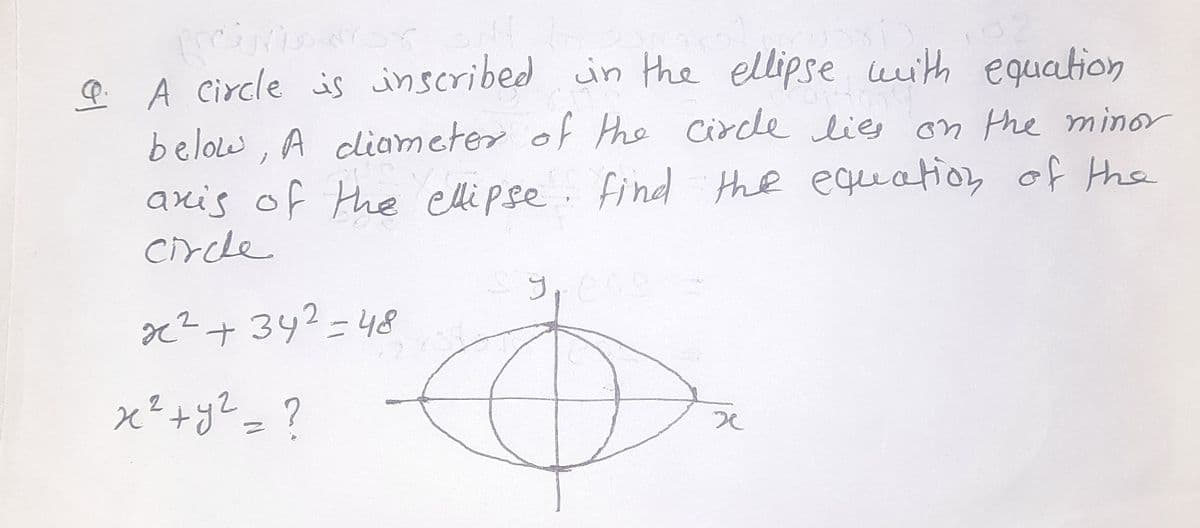 Q. A circle is inscribed in the ellipse with equation
below, A diameter of the circle lies on the minor
axis of the ellipse. find the equation of the
circle
y
x² + 3y² = 48
x² + y² = ?
x